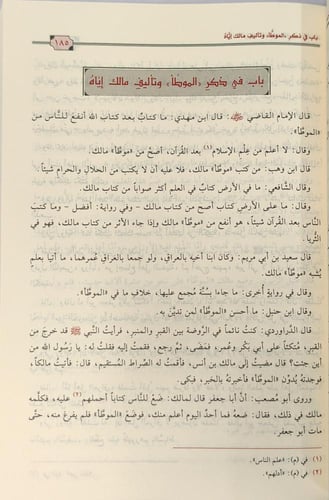 باب في ذكر «الموطأ» وتأليف مالك إيّاه
١٨٥
باب في ذكر «الموطأ» وتأليف مالك إيّاه
قال الإمام القاضي ﵁: قال ابن مهدي: ما كتابٌ بعد كتاب الله أنفعَ للنَّاس من
«الموطأ».
وقال: لا أعلم من عِلْم الإسلام(١) بعد القرآن، أصَحَّ من «موطأ» مالك.
قال ابن وهب: من كتب «موطأ» مالك، فلا عليه أن لا يكتب من الحلال والحرام شيئاً.
وقال الشَّافعي: ما في الأرض كتابٌ في العلم أكثر صواباً من كتاب مالك.
وقال: ما على الأرض كتاب أصح من كتاب مالك - وفي رواية: أفضل - وما كتب
النَّاس بعد القرآن شيئاً، هو أنفع من «موطأ» مالك وإذا جاء الأثر من كتاب مالك، فهو في
الثُّريا.
قال سعيد بن أبي مريم: وكان ابنا أخيه بالعراق، ولو جمعا بالعراق عُمرهما، ما أتيا بعلمٍ
يُشبه «موطأ» مالك.
وقال في روايةٍ أُخرى: ما جاءا بسُنَّة مُجمع عليها، خلاف ما في «الموطأ».
وقال ابن حنبل: ما أحسن «الموطأ» لمن تديَّن به.
قال الدَّراوردي: كنتُ نائماً في الرَّوضة بين القبر والمنبر، فرأيتُ النَّبي ﷺ قد خرجَ من
القبر، مُتكئاً على أبي بكر وعُمر، فمَضَى، ثمَّ رجع، فقمتُ إليه فقلتُ له: يا رسول الله من
أين جئت؟ قال: مضيتُ إلى مالك بن أنس، فأقمتُ له الصِّراط المستقيم، قال: فأتيتُ مالكاً،
فوجدتُه يُدوِّن «الموطأ» فأخبرتُه بالخبر، فبكى.
وروى أبو مُصعب: أنَّ أبا جعفر قال لمالك: ضَعْ للنَّاس كتاباً أحملهم(٢) عليه، فكلَّمه
مالك في ذلك، فقال: ضعهُ فما أحدٌ اليوم أعلم منك، فوضعَ «الموطأ» فلم يفرغ منه، حتَّى
مات أبو جعفر.
(١) في (م): «علم الناس».
(٢) في (م): «أدلهم».